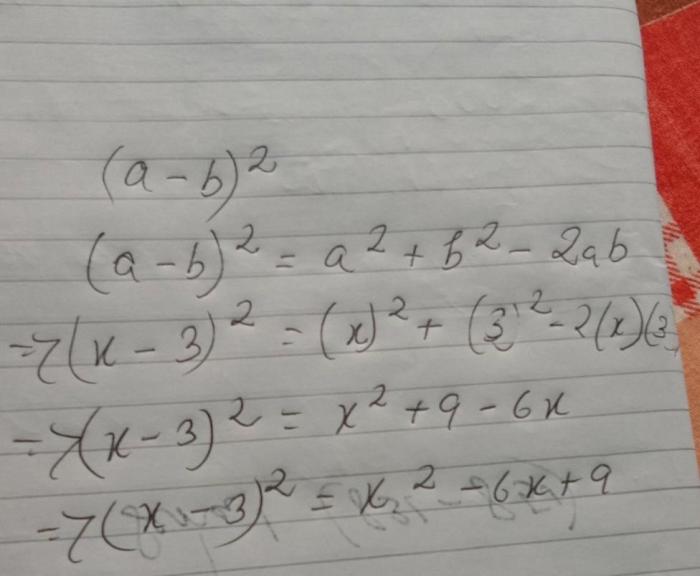 (a-b)²
(a-b)² = a² + b² - 2ab
⇒ (x-3)² = (x)² + (3)² - 2(x)(3
⇒ (x-3)² = x² + 9 - 6x
⇒ (x-3)² = x² - 6x + 9